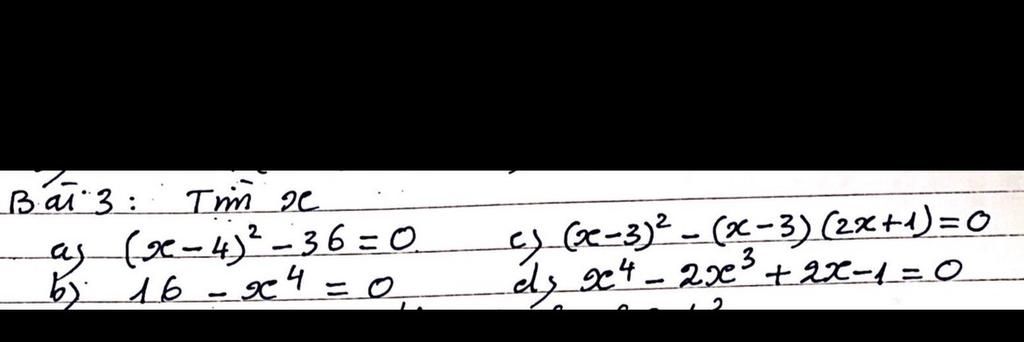 Bài 3: Tìm x
a) (x-4)² - 36 = 0 c) (x-3)² - (x-3)(2x+1) = 0
b) 16 - x⁴ = 0 d) x⁴ - 2x³ + 2x - 1 = 0